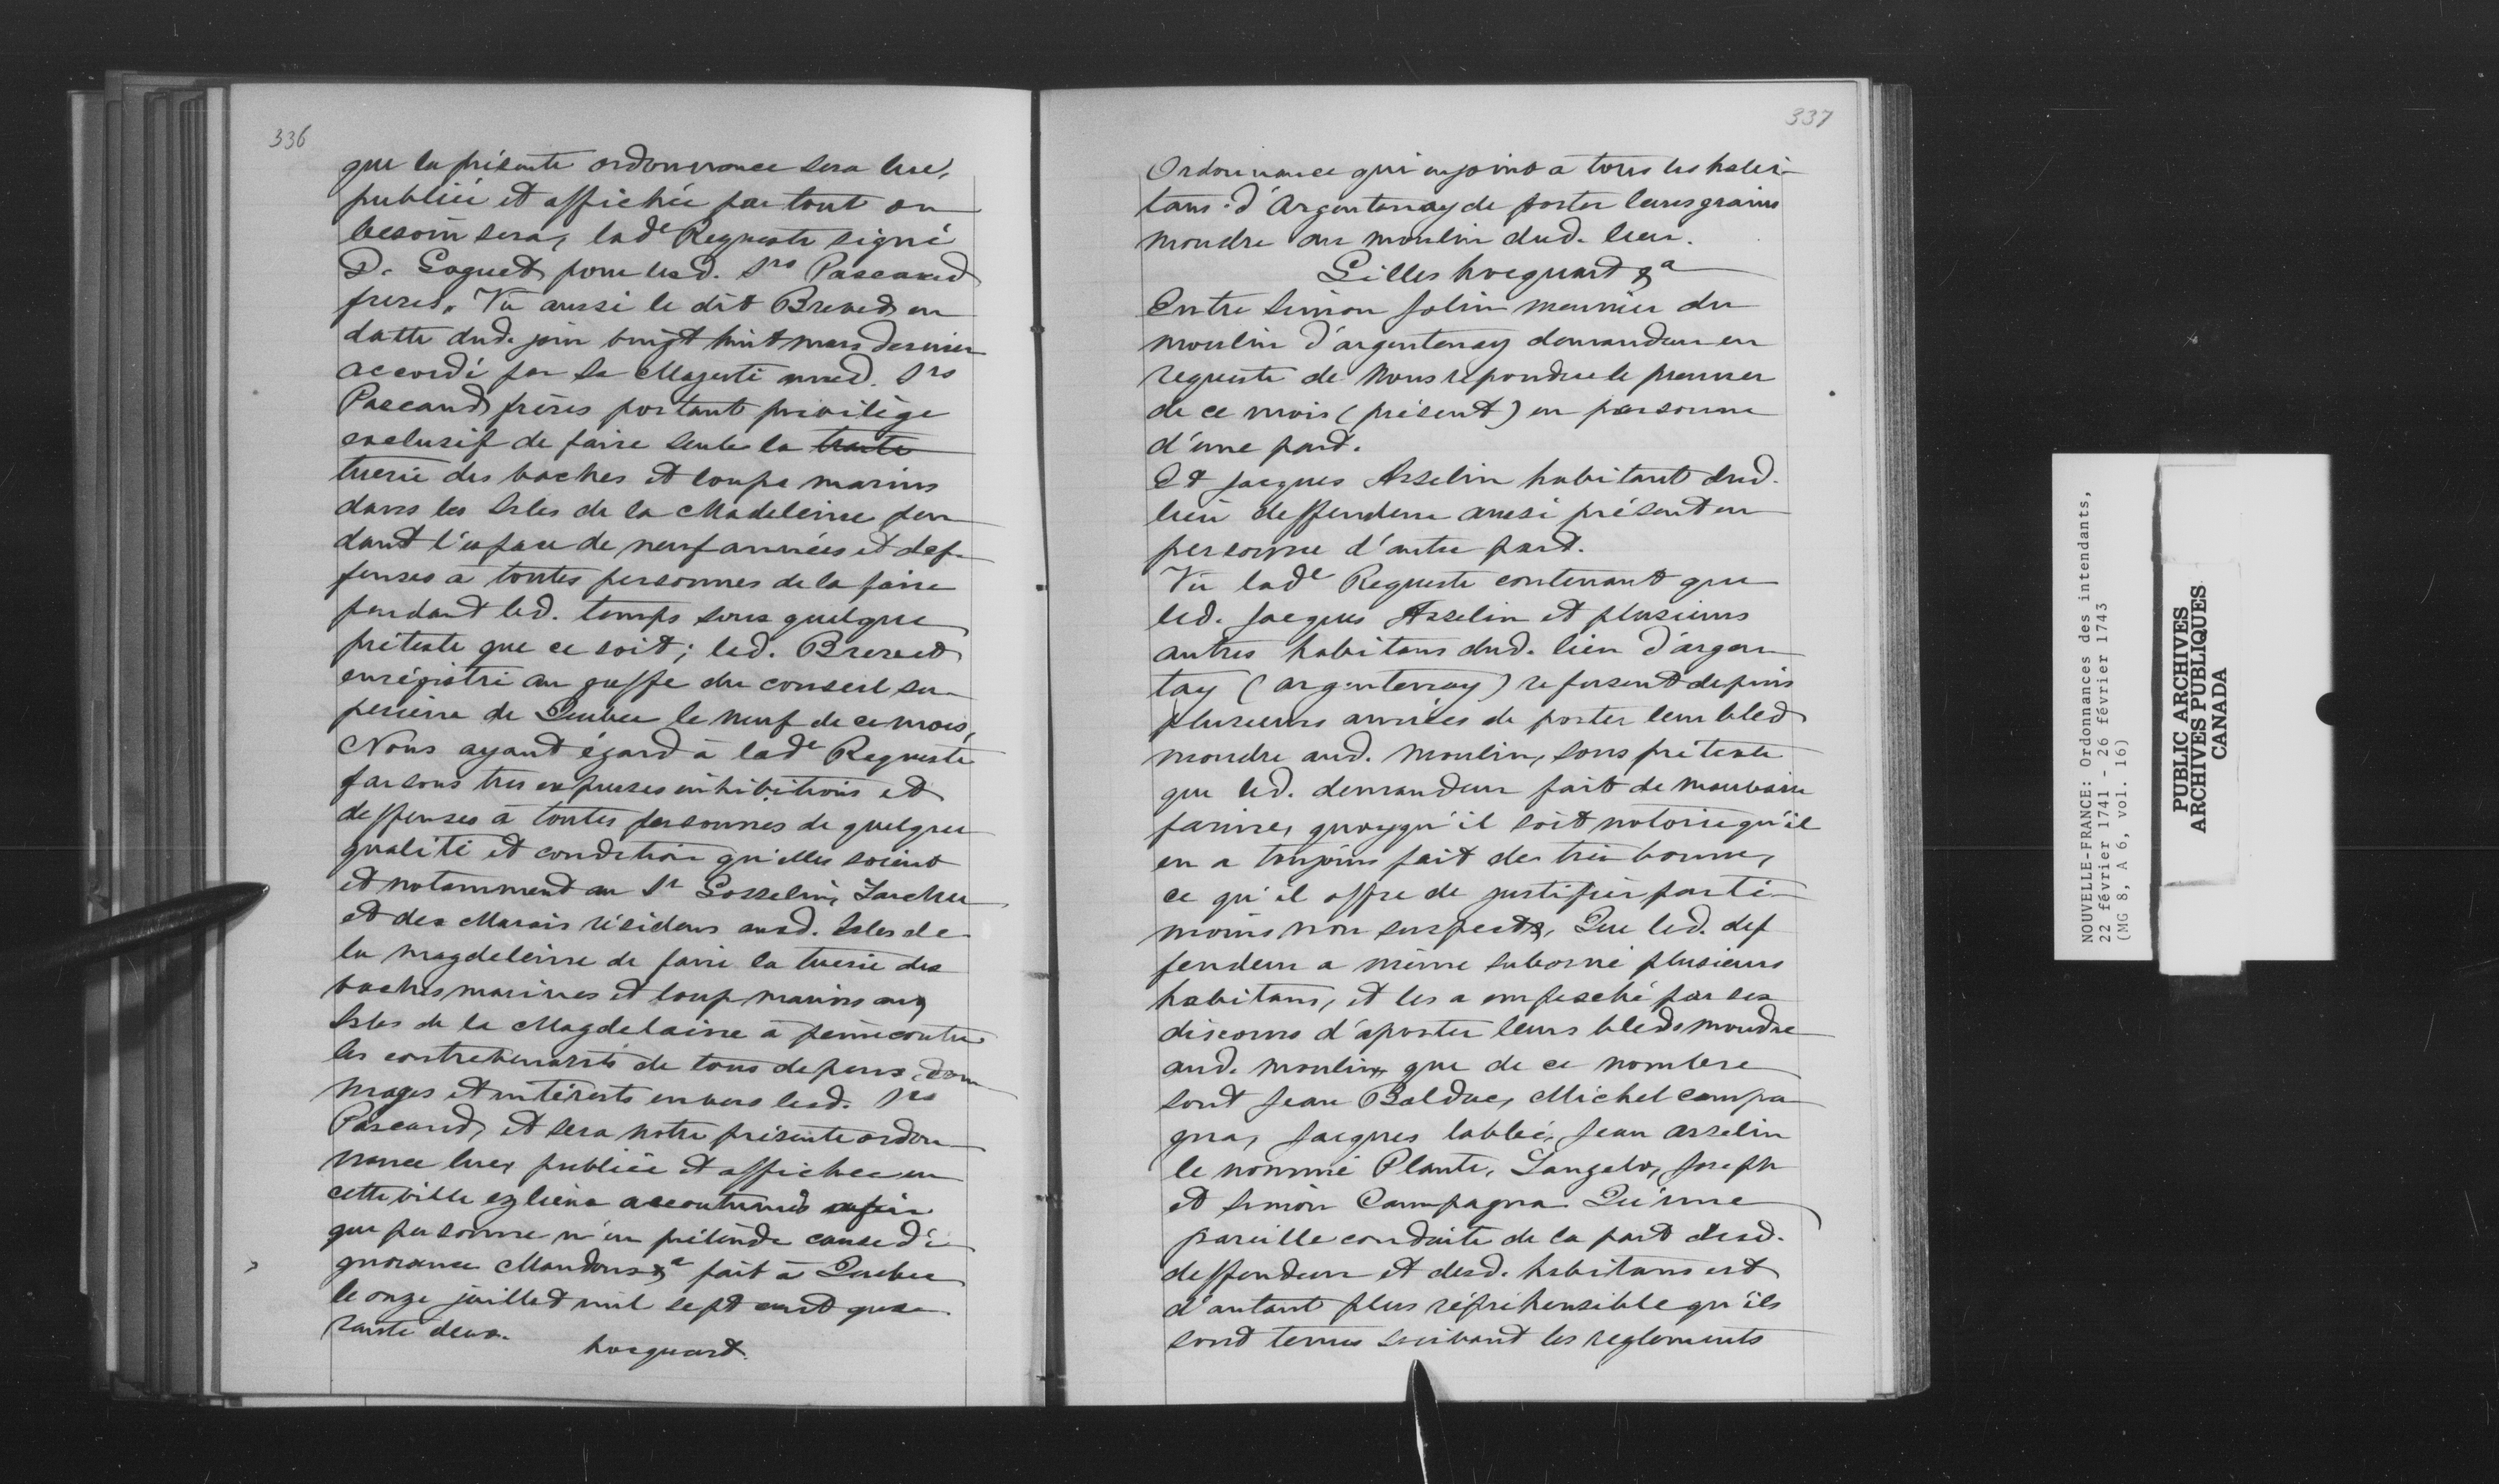 336
que la présente ordonnance sera luë,
publiée et affichée par tout ou
besoin sera, lade Requeste signé
D. Goguet pour lesd. Srs Pascaud
freres, Vu aussi le dit Brevet en
datte dud. jour vingt huit mars dernier
accordé par Sa Majesté auxd. Srs
Pascaud frères portant privilège
exclusif de faire seuls la traite
tuerie des vaches et loups marins
dans les Isles de la Madeleine pen
dant l'espace de neuf années et def-
fenses a toutes personnes de la faire
pendant led. temps sous quelque
prétexte que ce soit; led. Brevet
enrégistré au greffe du conseil su-
perieur de Quebec le neuf de ce mois,
Nous ayant égard à lade Requeste
faisons tres expresses inhibitions et
deffenses à toutes personnes de quelque
qualité et condition qu'elles soient
et notamment au Sr Gosselin, Larcher
et des Marais résidens auxd. Isles de
la magdeleine de faire la tuerie des
vaches marines et loup marins aux
Isles de la Magdelaine à peine contre
les contrevenants de tous depens, dom
mages et intérests envers lesd. Srs
Pascaud, et sera notre présente ordon
nance luë, publiée et affichée en
cette ville ez lieux accoutumés afin
que personne n'en prétende cause d'i
gnorance Mandons &a fait à Quebec
le onze juillet mil sept cent qua-
rante deux.
hocquart.
337
Ordonnance qui enjoint a tous les habi-
tans d'Argentenay de porter leurs grains
moudre au moulin dud. lieu.
Gilles hocquart &a
Entre Simon Jolin meunier du
moulin d'argentenay demandeur en
requeste de Nous répondue le premier
de ce mois (présent) en personne
d'une part.
Et Jacques Asselin habitant dud.
lieu deffendeur aussi présent en
personne d'autre part.
Vu lade Requeste contenant que
led. Jacques Asselin et plusieurs
autres habitans dud. lieu d'argen
tay (argentenay) refusent depuis
plusieurs années de porter leur bled
moudre aud. moulin, sous prétexte
que led. demandeur fait de mauvaise
farine, quoyqu'il soit notoire qu'il
en a toujours fait de très bonne,
ce qu'il offre de justifier par té-
moins non suspects, Que led. def
fendeur a même suborné plusieurs
habitans, et les a empesché par ses
discours d'aporter leurs bleds moudre
aud. moulin, que de ce nombre
sont Jean Balduc, Michel campa
gna, Jacques labbé, Jean asselin
le nommé Plante, Langelo, Joseph
et Simon Campagna Qu'une
pareille conduite de la part dud.
deffendeur et desd. habitans est
d'autant plus répréhensible qu'ils
sont tenus suivant les reglements
NOUVELLE-FRANCE: Ordonnances des intendants,
22 février 1741 - 26 février 1743
(MG 8, A 6, vol. 16)
PUBLIC ARCHIVES
ARCHIVES PUBLIQUES
CANADA